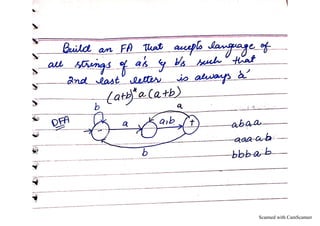 Build an FA that accepts language of
all strings of a's & b's such that
2nd last letter is always 'a'
(a+b)* a (a+b)
b a
DFA - a a,b +
b
abaa
aaaab
bbbab
Scanned with CamScanner